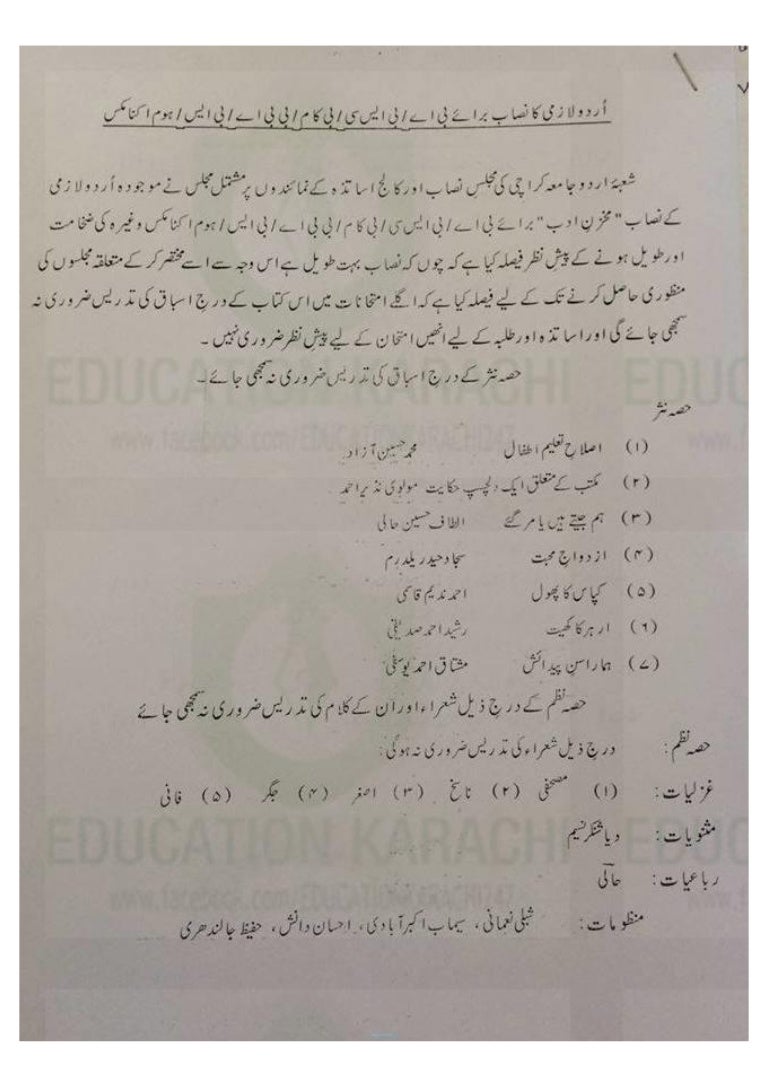 اُردو لازمی کا نصاب برائے بی اے/بی ایس سی/بی کام/بی بی اے/بی ایس/ہوم اکنامکس
شعبۂ اردو جامعہ کراچی کی مجلسِ نصاب اور کالج اساتذہ کے نمائندوں پر مشتمل مجلس نے موجودہ اُردو لازمی
کے نصاب "مخزنِ ادب" برائے بی اے/بی ایس سی/بی کام/بی بی اے/بی ایس/ہوم اکنامکس وغیرہ کی ضخامت
اور طویل ہونے کے پیش نظر فیصلہ کیا ہے کہ چوں کہ نصاب بہت طویل ہے اس وجہ سے اسے مختصر کر کے متعلقہ مجلسوں کی
منظوری حاصل کرنے تک کے لیے فیصلہ کیا ہے کہ اگلے امتحانات میں اس کتاب کے درج اسباق کی تدریس ضروری نہ
سمجھی جائے گی اور اساتذہ اور طلبہ کے لیے انھیں امتحان کے لیے پیشِ نظر ضروری نہیں۔
حصہ نثر کے درج اسباق کی تدریس ضروری نہ سمجھی جائے۔
حصہ نثر
(۱) اصلاح تعلیم اطفال محمد حسین آزاد
(۲) مکتب کے متعلق ایک دلچسپ حکایت مولوی نذیر احمد
(۳) ہم جیتے ہیں یا مر گئے الطاف حسین حالی
(۴) ازدواج محبت سجاد حیدر یلدرم
(۵) کپاس کا پھول احمد ندیم قاسمی
(۶) ارہر کا کھیت رشید احمد صدیقی
(۷) ہمارا سن پیدائش مشتاق احمد یوسفی
حصہ نظم کے درج ذیل شعراء اور ان کے کلام کی تدریس ضروری نہ سمجھی جائے
حصہ نظم: درج ذیل شعراء کی تدریس ضروری نہ ہوگی:
غزلیات: (۱) مصحفی (۲) ناسخ (۳) اصغر (۴) جگر (۵) فانی
مثنویات: دیا شنکر نسیم
رباعیات: حالی
منظومات: شبلی نعمانی، سیماب اکبر آبادی، احسان دانش، حفیظ جالندھری
EDUCATION KARACHI
www.facebook.com/EDUCATIONKARACHI247
EDUCATION KARACHI
www.facebook.com/EDUCATIONKARACHI247